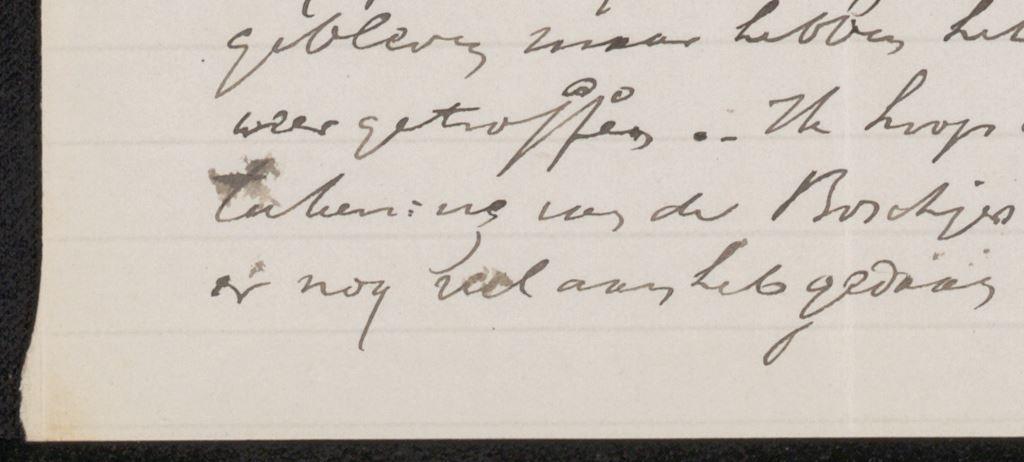 gebleven maar hebben het
weer getroffen .- Ik hoop
teekening van de Boschjes
er nog veel aan heb gedaan